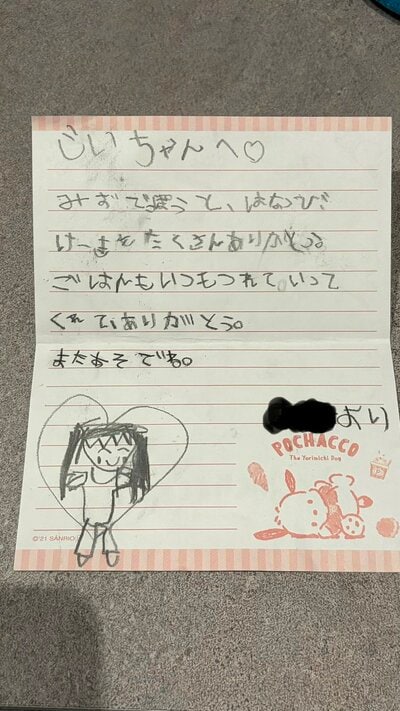 じいちゃんへ♡
みずでぽうと、はなび、
けーきをたくさんありがとう。
ごはんもいつもつれていって
くれて、ありがとう。
またあそでね。
おり
POCHACCO
The Yorimichi Dog
©'21 SANRIO